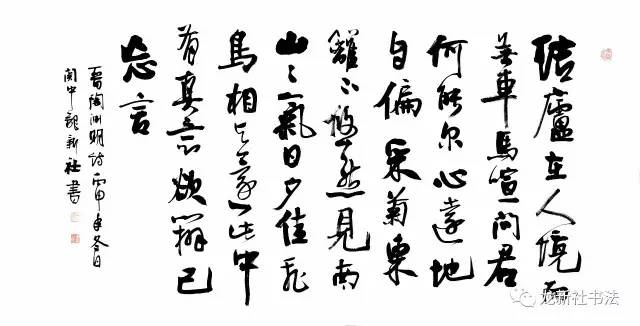 结廬在人境而
無車馬喧问君
何能尔心遠地
自偏采菊東
籬下悠然見南
山々氣日夕佳飛
鳥相与還此中
有真意欲辨已
忘言
晋陶渊明诗丙申年冬日
関中龍新社書
龙新社书法